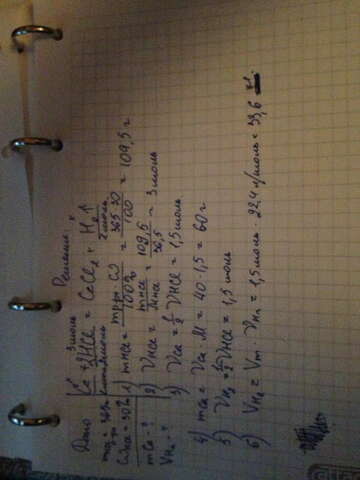 Дано
Решение
Ca + 2HCl = CaCl₂ + H₂↑
ω HCl = 30%
m Ca - ?
V H₂ - ?
1) mHCl = mр-ра · ω / 100% = 365·30 / 100 = 109,5 г
2) νHCl = mHCl / MHCl = 109,5 / 36,5 = 3 моль
3) νCa = 1/2 νHCl = 1,5 моль
4) mCa = νCa · M = 40 · 1,5 = 60 г
5) νH₂ = 1/2 νHCl = 1,5 моль
6) VH₂ = Vm · νH₂ = 1,5 моль · 22,4 л/моль = 33,6